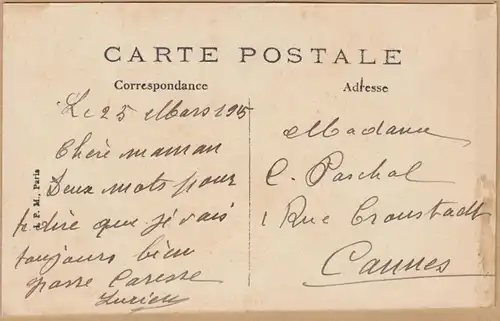 CARTE POSTALE
Correspondance
Adresse
Le 25 Mars 195
Chère maman
Deux mots pour
te dire que je vais
toujours bien
grosse Caresse
Lucien
Madame
C. Paschal
1 Rue Cronstadt
Cannes
P. M., Paris